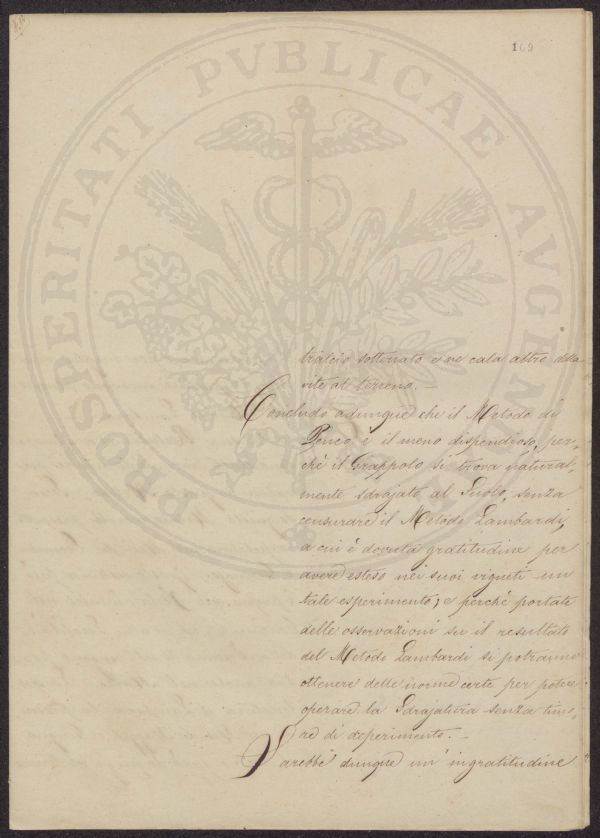 109
PROSPERITATI PVBLICAE AVGENDAE
tralcio sotterrato e ne cala altro dalla
vite al terreno. —
Concludo adunque che il Metodo di
è il meno dispendioso, per-
chè il Grappolo si trova natural-
mente sdrajato al Suolo, senza
censurare il Metodo Lambardi,
a cui è dovuta gratitudine per
avere esteso nei suoi vigneti un
tale esperimento; e perchè portate
delle osservazioni su il resultato
del Metodo Lambardi si potranno
ottenere delle norme certe per potere
operare la Sdrajatura senza timo-
re di deperimento. —
Sarebbe dunque un' ingratitudine